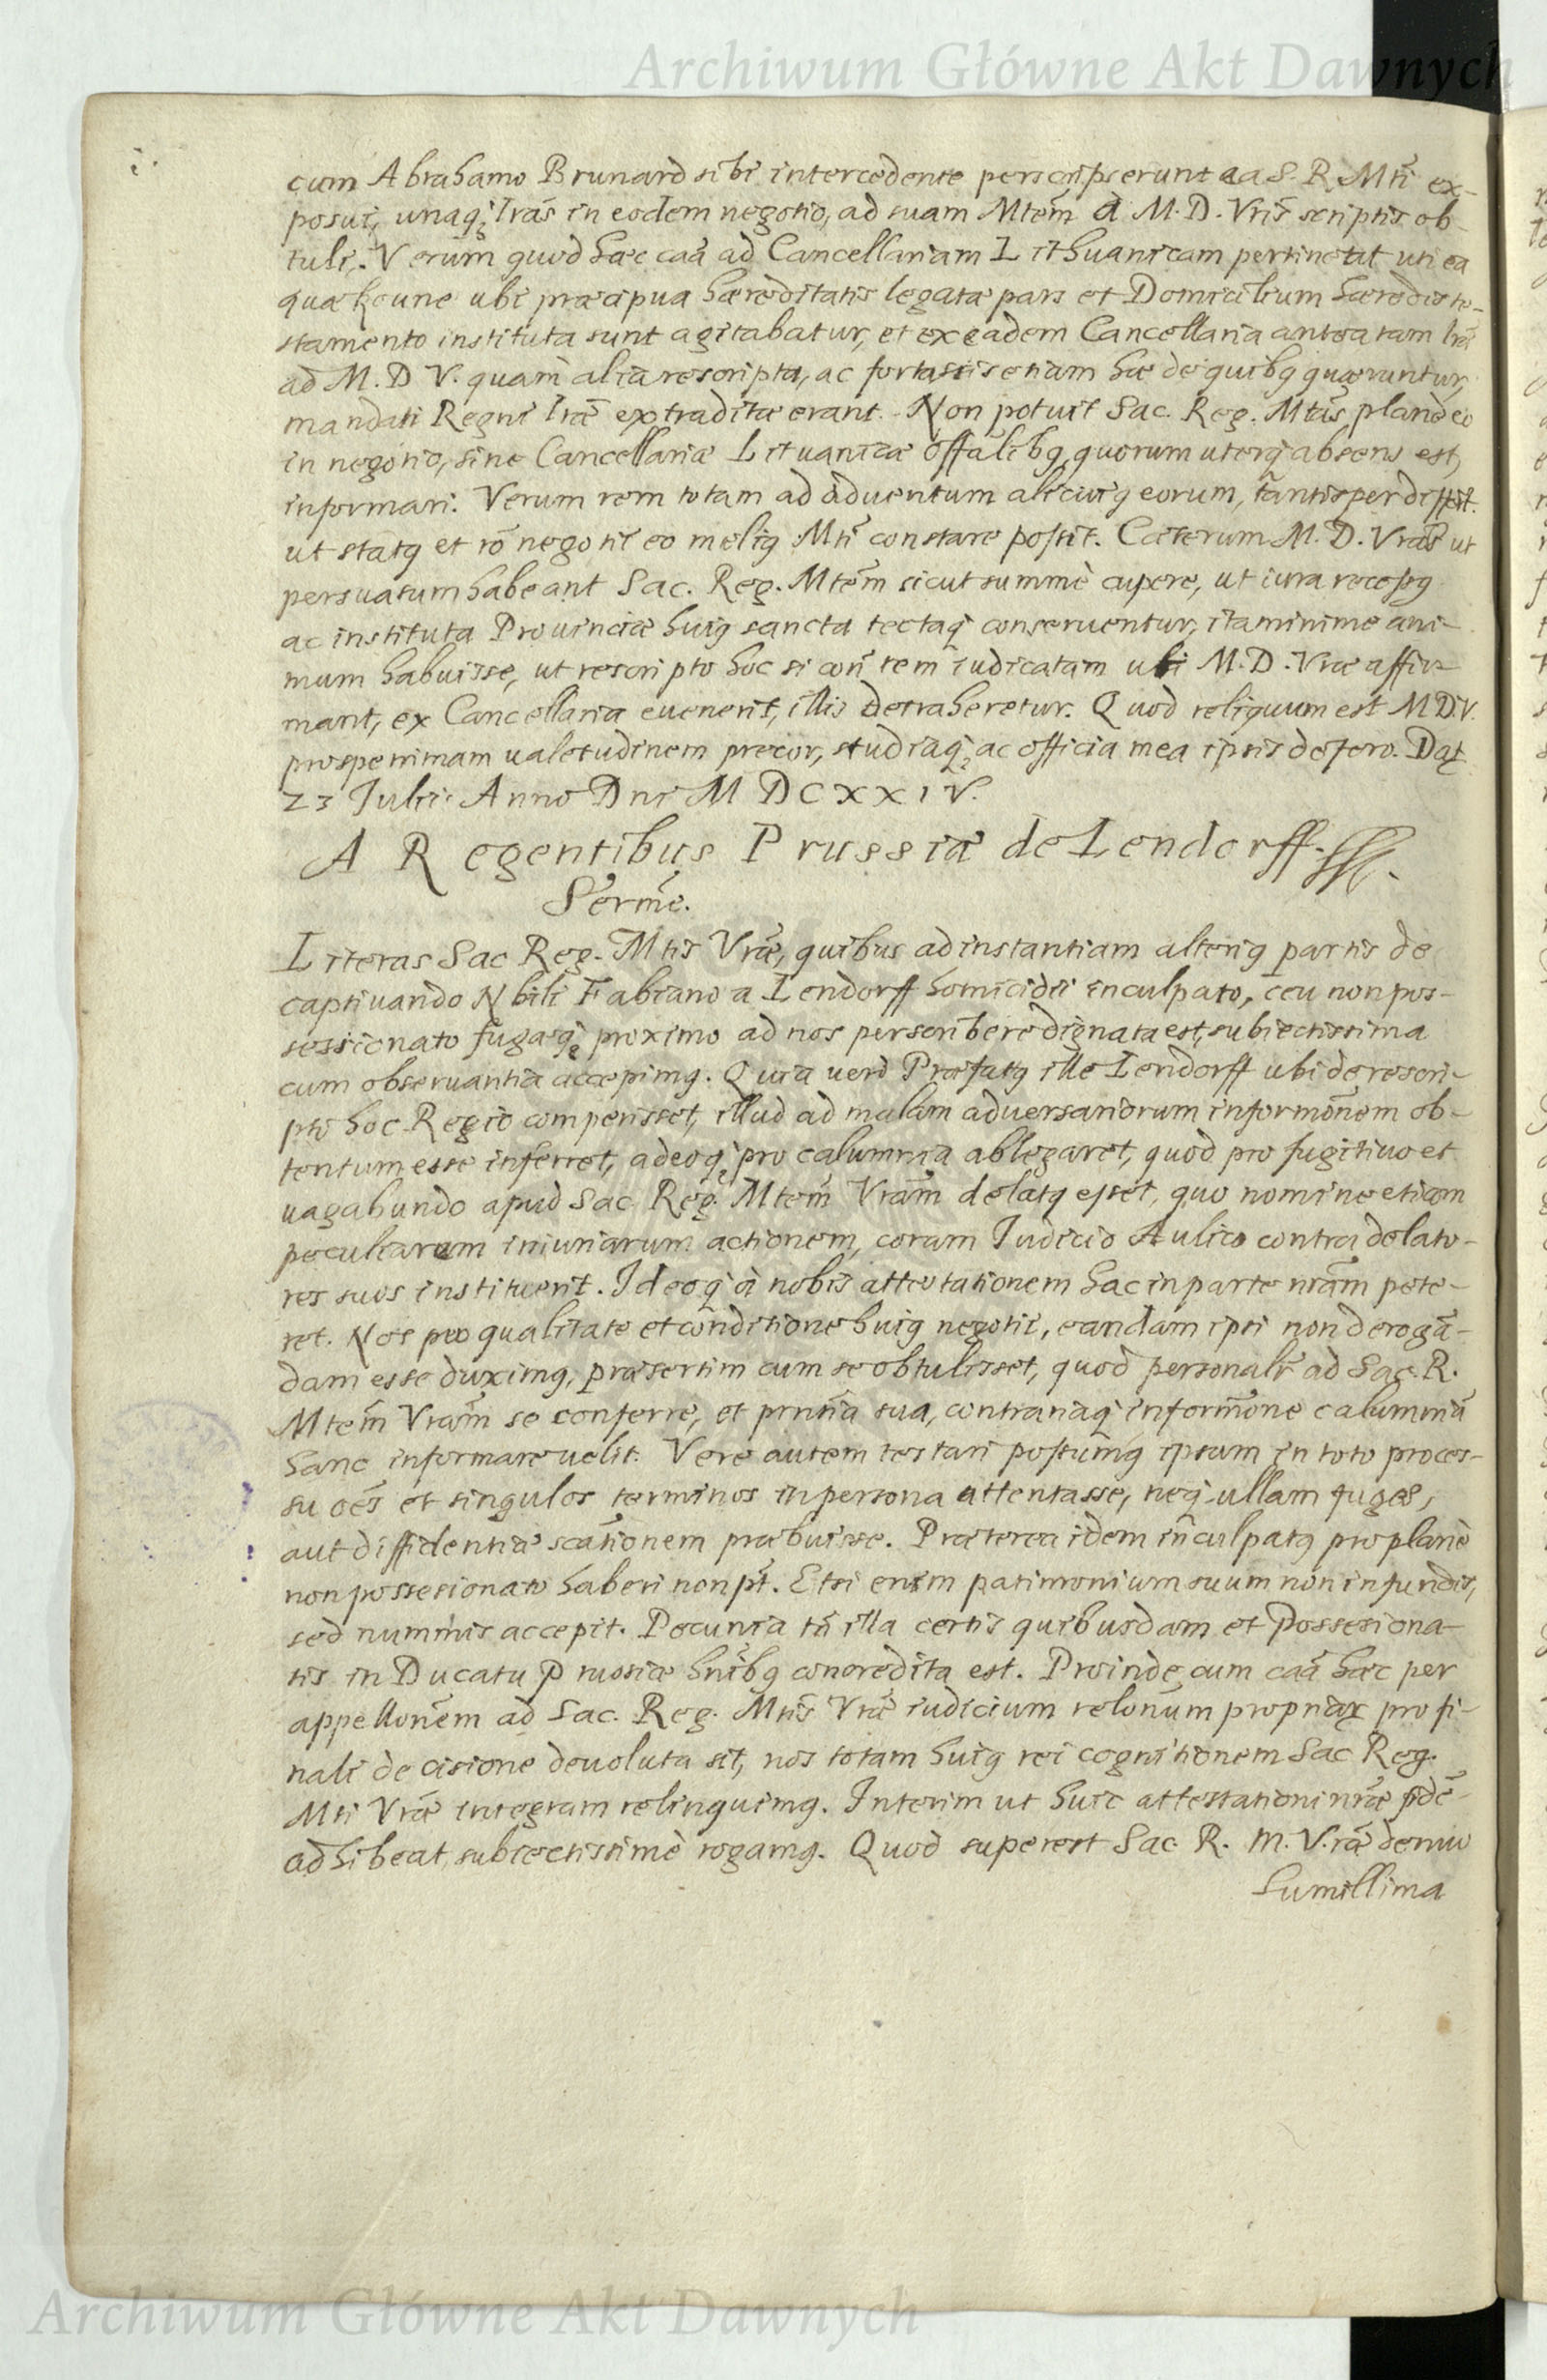 Archiwum Główne Akt Dawnych
cum Abrahamo Brunard sibi intercedente perscripserunt ea S. R. Mti ex-
posui, unaq; lrãs in eodem negotio, ad suam Mtem à M. D. Vris scriptis ob-
tuli. Verùm quod hæc caã ad Cancellariam Lithuanicam pertineat uti ea
quæ Koune ubi præcipua hæreditatis legatæ pars et Domicilium hæredis te-
stamento instituta sunt agitabatur, et ex eadem Cancellaria antea tam lræ
ad M. D V. quàm alia rescripta, ac fortassis etiam hæ de quibq quæruntur,
mandati Regni lræ extraditæ erant. Non potuit Sac. Reg. Mtas, planè eo
in negotio, sine Cancellariæ Lituanicæ offalibq, quorum uterq absens est,
informari. Verum rem totam ad aduentum alicuiq eorum, tantisper distulit.
ut statq et rõ negotii eo meliq Mti constare possit. Cæterum M. D. Vras ut
persuasum habeant Sac. Reg. Mtem sicut summè cupere, ut iura recessq
ac instituta Prouinciæ huiq sancta tectaq conseruentur, ita minime ani-
mum habuisse, ut rescripto hoc si con rem iudicatam uti M. D. Vræ affir-
mant, ex Cancellaria euenerit, illis detraheretur. Quod reliquum est M D. V.
prosperrimam ualetudinem precor, studiaq; ac officia mea ipsis defero. Dat
23 Julii Anno Dni M D C X X I V.
A Regentibus Prussiæ de Lendorff.
Serme.
Literas Sac Reg. Mtis Vræ, quibus ad instantiam alteriq partis de
captivando Nbili Fabiano a Lendorff homicidii inculpato, ceu non pos-
sessionato fugæq; proximo ad nos perscribere dignata est, subiectissima
cum obseruantia accepimq. Quia uerò Præfatq ille Lendorff ubi de rescri-
pto hoc Regio comperisset, illud ad malam aduersariorum informõnem ob-
tentum esse inferret, adeoq; pro calumnia ablegaret, quod pro fugitiuo et
uagabundo apud Sac. Reg. Mtem Vram delatq esset, quo nomine etiam
peculiarem iniuriarum actionem, coram Iudicio Aulico contra delato-
res suos instituerit. Ideoq à nobis attestationem hac in parte nram pete-
ret. Nos pro qualitate et conditione huiq negotii, eandam ipsi non derogã-
dam esse duximq, præsertim cum se obtulisset, quod personalr ad Sac. R.
Mtem Vram se conferre, et prntia sua, contrariaq informone calumniã
hanc informare uelit. Vere autem testari possumq ipsum in toto proces-
su oẽs et singulos terminos in persona attentasse, neq ullam fugæ,
aut diffidentiæ scationem præbuisse. Præterea idem inculpatq pro planè
non possesionato haberi non pt. Etsi enim patrimonium suum non in fundis,
sed nummis accepit. Pecunia tñ illa certis quibusdam et possesiona-
tis in Ducatu Prussiæ hnibq concredita est. Proinde cum caã hæc per
appellonem ad Sac. Reg. Mtis Vræ iudicium relonum propriar pro fi-
nali decisione deuoluta sit, nos totam huiq rei cognitionem Sac Reg.
Mti Vræ integram relinquimq. Interim ut huic attestationi nræ fidẽ
adhibeat, subiectissimè rogamq. Quod superest Sac. R. M. V.ræ denuo
humillima
Archiwum Główne Akt Dawnych